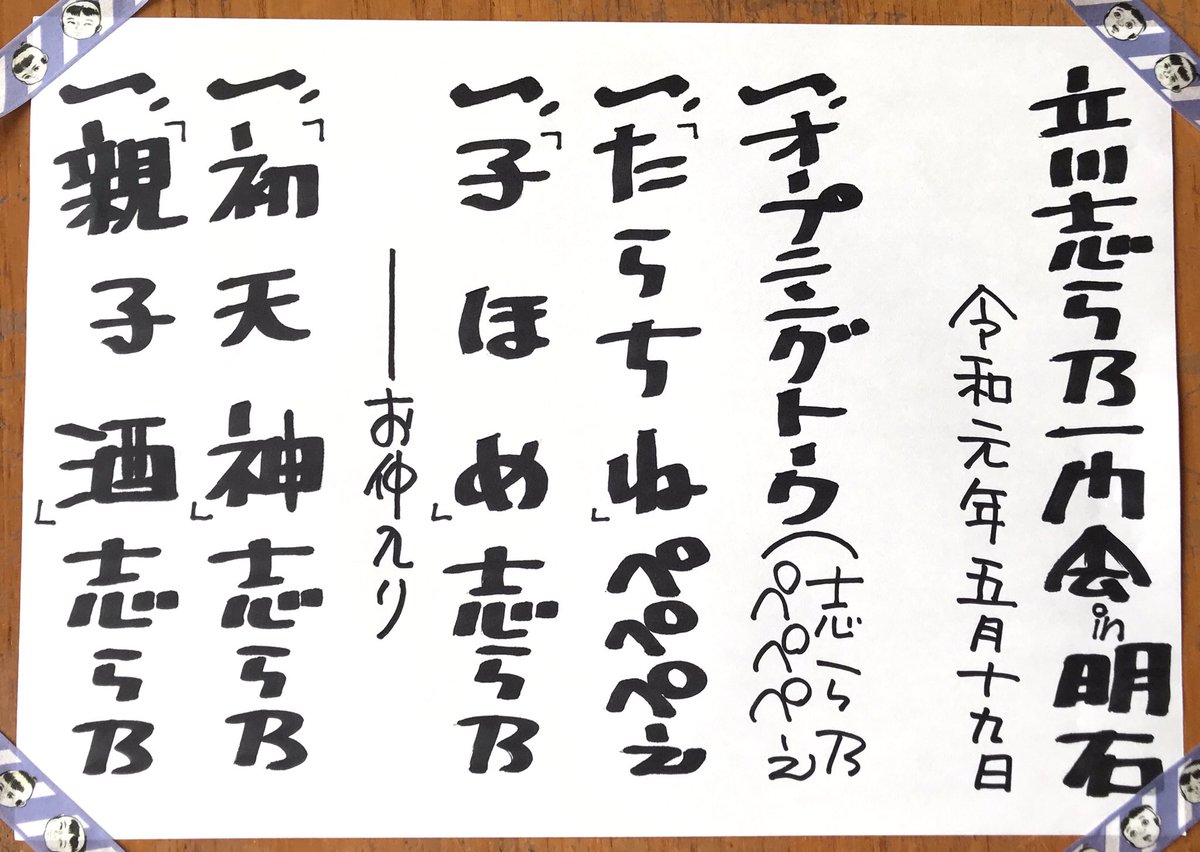 立川志ら乃一門会in明石
令和元年五月十九日
一、オープニングトーク(志ら乃
ぺぺぺえ
一、「たらちね」ぺぺぺえ
一、「子ほめ」志ら乃
――お仲入り
一、「初天神」志ら乃
一、「親子酒」志ら乃